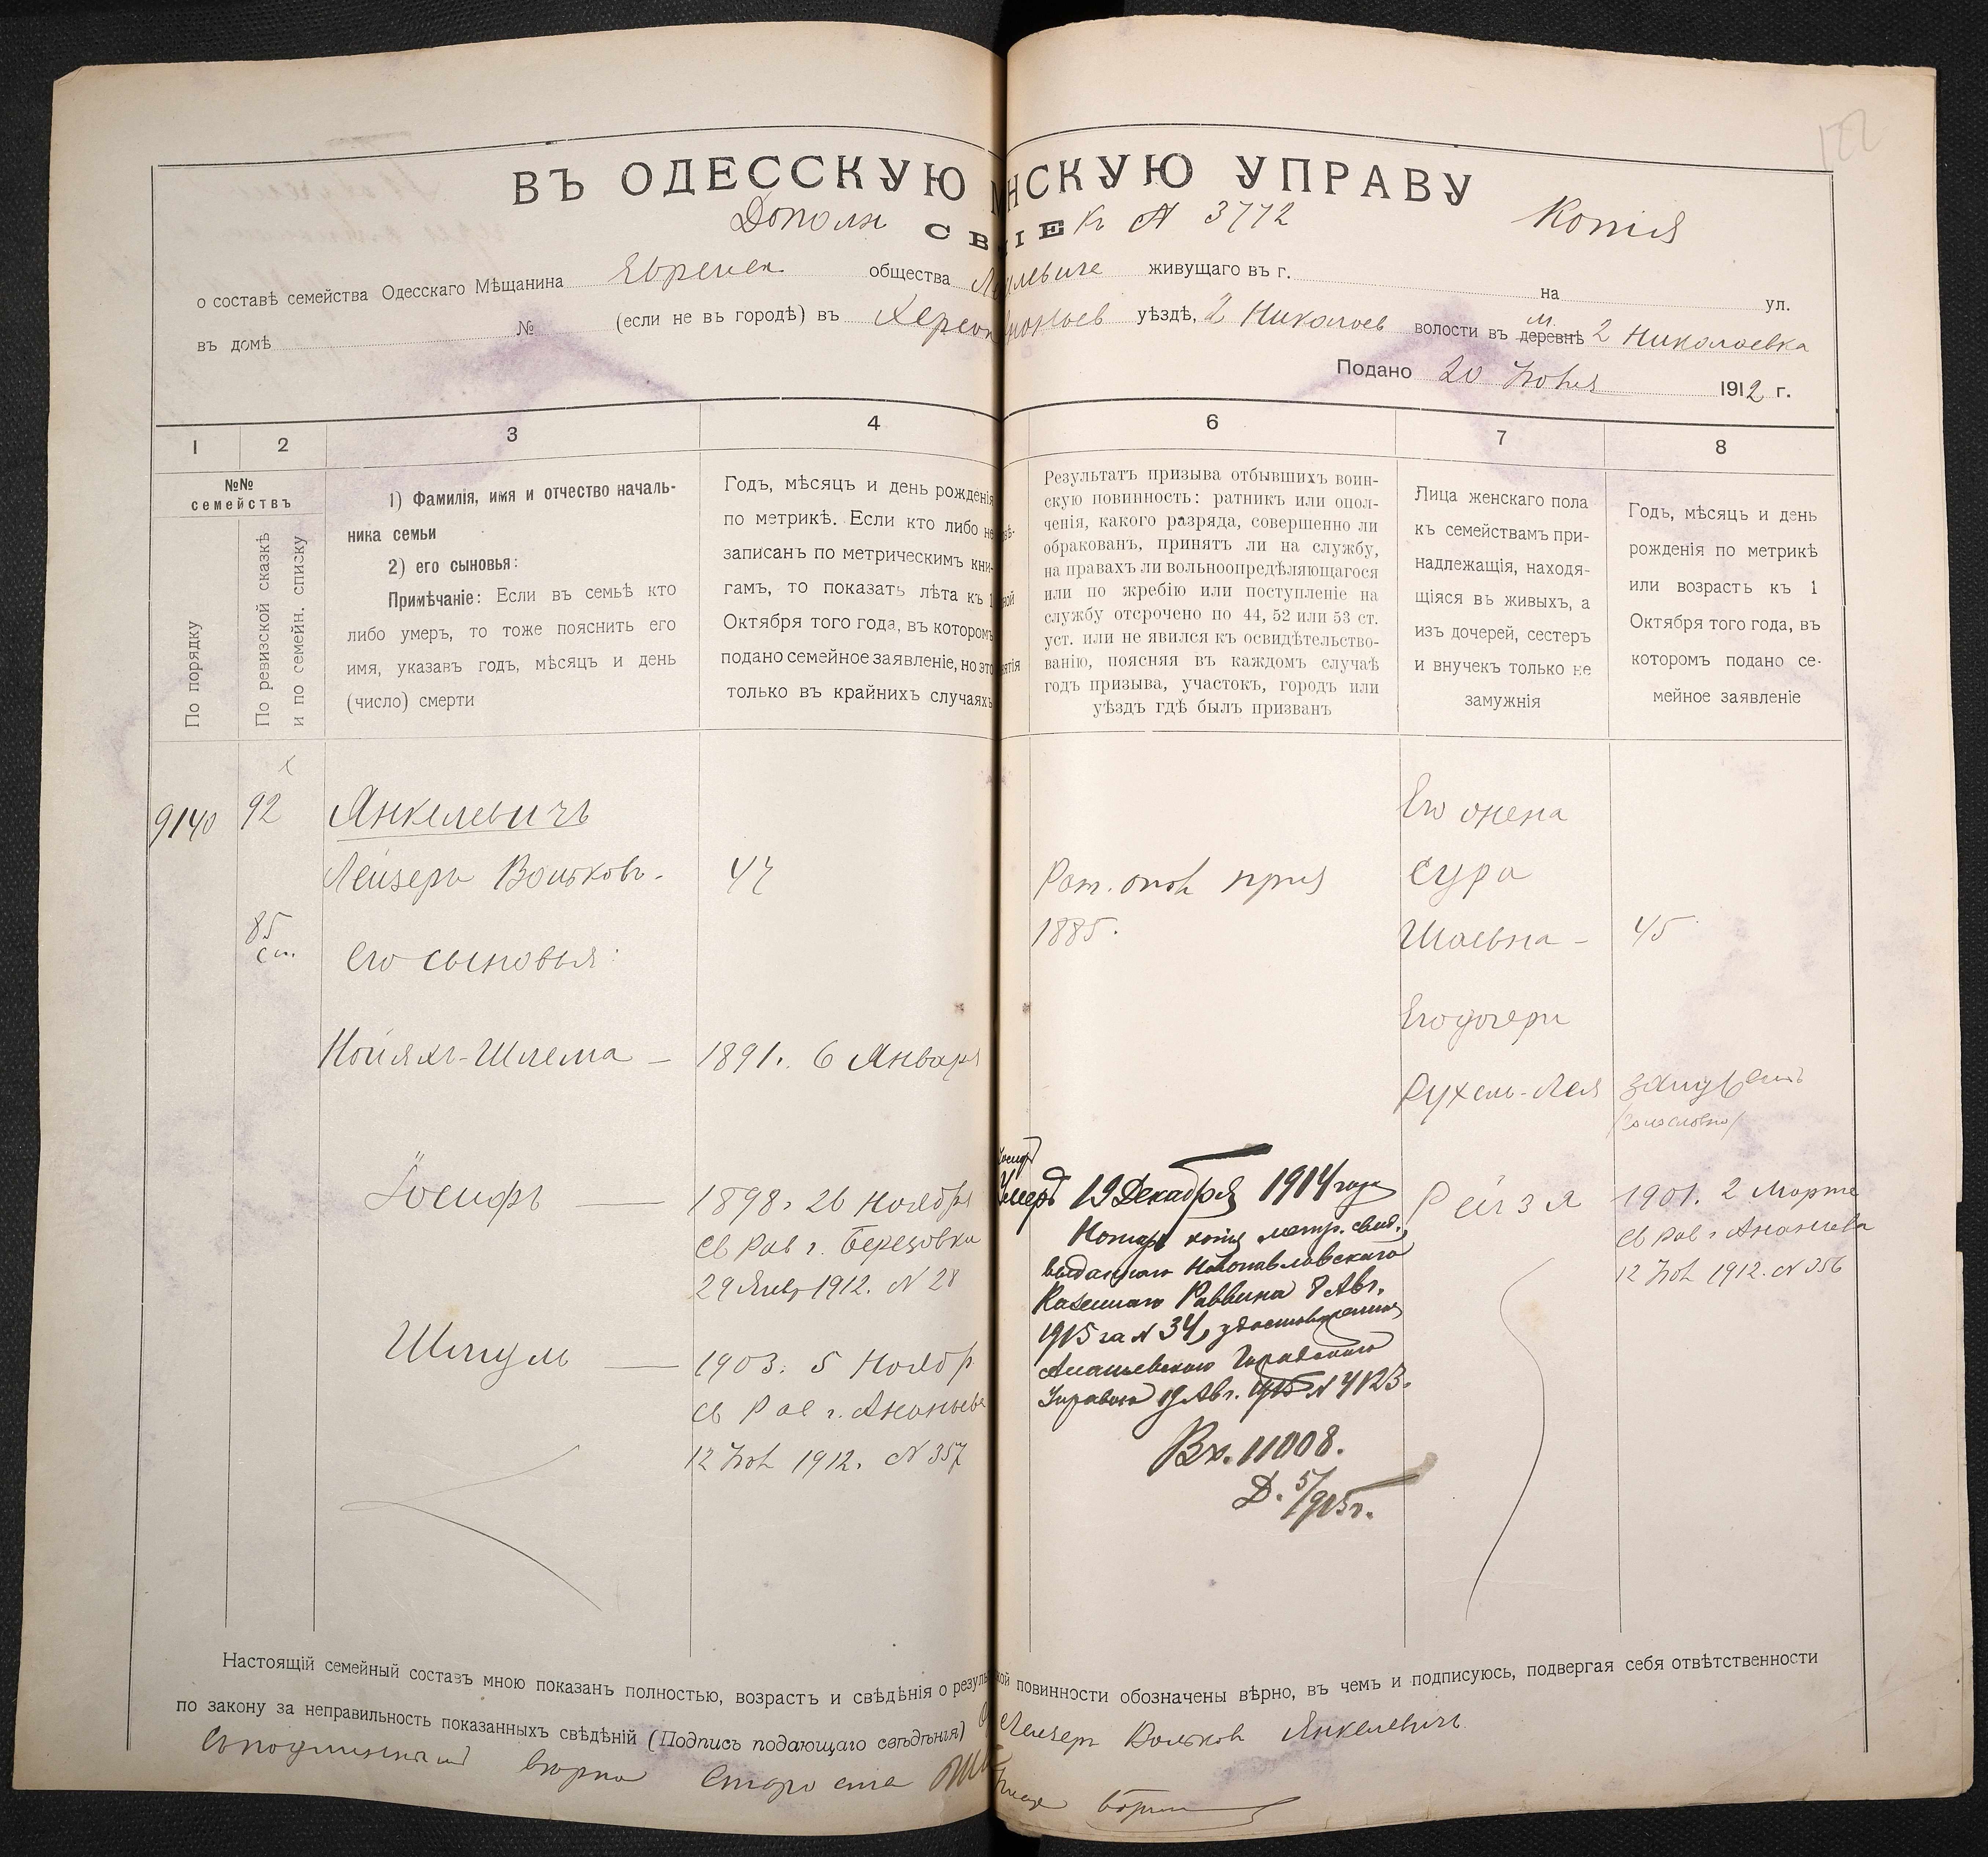 ВЪ ОДЕССКУЮ НСКУЮ УПРАВУ
Дополн СВ ІЕ къ № 3772 Копія
о составѣ семейства Одесскаго Мѣщанина Евреиск общества живущаго въ г. на ул.
въ домѣ № (если не въ городѣ) въ Херсон уѣздѣ, 2 Николаев волости въ м. деревнѣ 2 Николаевка
Подано 20 Іюня 1912 г.
1 2 3 4 6 7 8
№№ семействъ
По порядку
По ревизской сказкѣ
и по семейн. списку
1) Фамилія, имя и отчество началь-
ника семьи
2) его сыновья:
Примѣчаніе: Если въ семьѣ кто
либо умеръ, то тоже пояснить его
имя, указавъ годъ, мѣсяцъ и день
(число) смерти
Годъ, мѣсяцъ и день рожденія
по метрикѣ. Если кто либо не
записанъ по метрическимъ кни-
гамъ, то показать лѣта къ 1
Октября того года, въ которомъ
подано семейное заявленіе, но это
только въ крайнихъ случаяхъ
Результатъ призыва отбывшихъ воин-
скую повинность: ратникъ или опол-
ченія, какого разряда, совершенно ли
обракованъ, принятъ ли на службу,
на правахъ ли вольноопредѣляющагося
или по жребію или поступленіе на
службу отсрочено по 44, 52 или 53 ст.
уст. или не явился къ освидѣтельство-
ванію, поясняя въ каждомъ случаѣ
годъ призыва, участокъ, городъ или
уѣздъ гдѣ былъ призванъ
Лица женскаго пола
къ семействамъ при-
надлежащія, находя-
щіяся въ живыхъ, а
изъ дочерей, сестеръ
и внучекъ только не
замужнія
Годъ, мѣсяцъ и день
рожденія по метрикѣ
или возрасть къ 1
Октября того года, въ
которомъ подано се-
мейное заявленіе
9140 92 Янкелевичъ
Его жена
Лейзеръ Вольковъ. 47 Рат. опол приз Сура
85 1885. Шаевна - 45
сп. Его сыновья:
Его дочери
Нойяхъ-Шлема — 1891. 6 Января
Рухель-Лея замужемъ
/голословно/
Іосифъ
Іосифъ — 1898. 26 Ноября Умеръ 19 Декабря 1914 года Рейзя 1901. 2 Марта
св Рав г. Березовка Нотар копія метр. свид. св Рав г Ананьева
29 Янв 1912. № 28 выданнаго Новопавловскаго 12 Іюн 1912. № 356
Казеннаго Раввина 8 Авг.
1915 за № 34, удостовѣренная
Ананьевскою Городскою
Управою 19 Авг. 1915 № 4123.
Вх. 11008.
Д. 5/915 г.
Шмуль — 1903. 5 Ноябр
св Рав г. Ананьева
12 Іюн 1912. № 357
Настоящій семейный составъ мною показанъ полностью, возрастъ и свѣдѣнія о резуль ной повинности обозначены вѣрно, въ чемъ и подписуюсь, подвергая себя отвѣтственности
по закону за неправильность показанныхъ свѣдѣній (Подпись подающаго свѣдѣнія) Лейзеръ Вольков Янкелевичъ
Съ подлиннымъ вѣрно Староста